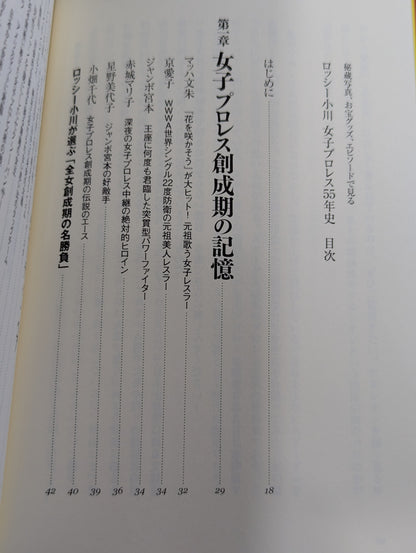 秘蔵写真、お宝グッズ、エピソードで見る
ロッシー小川 女子プロレス55年史 目次
はじめに 18
第一章 女子プロレス創成期の記憶 29
マッハ文朱 「花を咲かそう」が大ヒット! 元祖歌う女子レスラー 32
京愛子 WWWA世界シングル22度防衛の元祖美人レスラー 34
ジャンボ宮本 王座に何度も君臨した突貫型パワーファイター 34
赤城マリ子 深夜の女子プロレス中継の絶対的ヒロイン 36
星野美代子 ジャンボ宮本の好敵手 39
小畑千代 女子プロレス創成期の伝説のエース 40
ロッシー小川が選ぶ「全女創成期の名勝負」 42